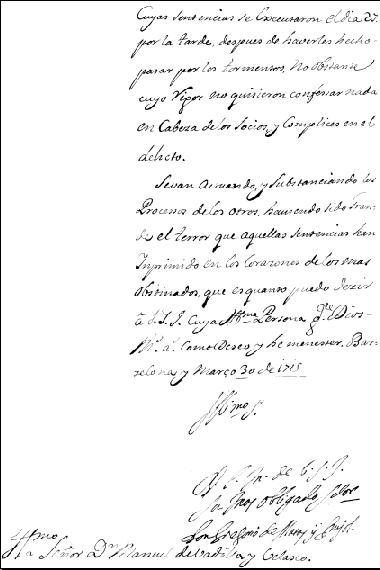 Cuyas sentencias se Executaron el dia 27.
por la tarde, despues de haverles hecho
pasar por los tormentos, No obstante
cuyo Vigor no quisieron confesar nada
en Cabeza de los Socios, y Complices en el
delicto.
Sevan Armando, y Substanciando los
Procesos de los otros, haviendo sido Gran-
de el terror que aquellas sentencias han
Inprimido en los Corazones de los mas
Obstinados, que es quanto puedo dezir
à V.S.I. Cuya Illma Persona gde Dios
ms as como Deseo y he menester. Bar-
zelona y Março 30 de 1715
Illmo Sr
de V.S.I.
su mas obligado servor
Don Gregorio de
Illmo
Señor Dn Manuel de Vadillo y Velasco.